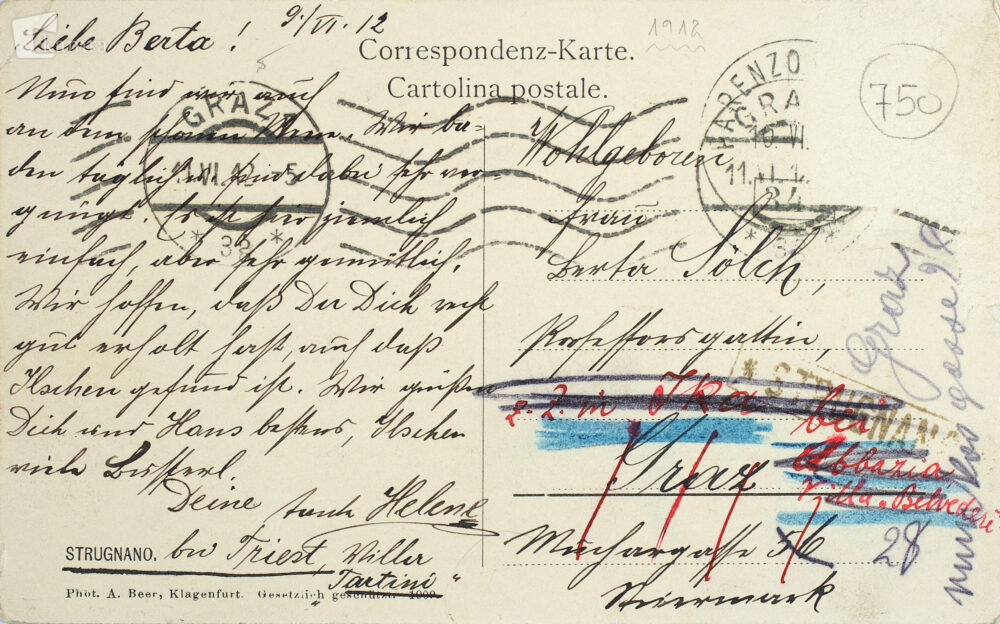 9./VI. 12
Liebe Berta!
1912
Correspondenz-Karte.
Cartolina postale.
750
Nun sind wir auch
an den schönen Wir ba-
den täglich u. sind dabei sehr ver-
gnügt. Es ist hier ziemlich
einfach, aber sehr gemütlich.
Wir hoffen, daß Du Dich recht
gut erholt hast, auch daß
Ilschen gesund ist. Wir grüßen
Dich und Hans bestens, Ilschen
viele Busserl.
Deine tante Helene
STRUGNANO. bei Triest, Villa
"Tartini"
Phot. A. Beer, Klagenfurt. Gesetzlich geschützt. 1909.
GRAZ
11.VI.12 5
* 33 *
PARENZO
GRA
10 VI
11.VI.12
34
Wohlgeboren
Frau
Berta Sölch,
Professorsgattin,
z. Z. in Ika bei
Abbazia
Villa "Belvedere"
Graz
Muchargasse 56
28
Steiermark
* STRUGNANO
Graz
gasse